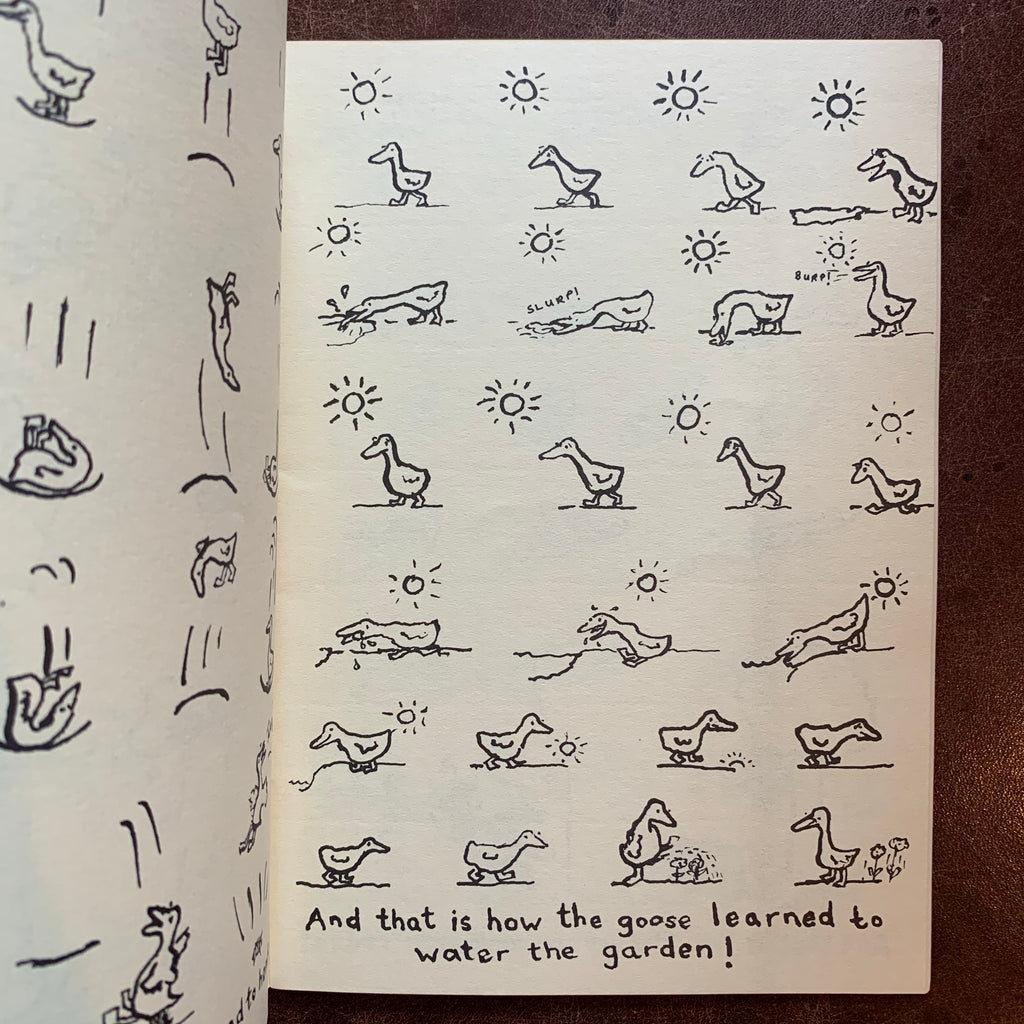 BURP!
SLURP!
And that is how the goose learned to
water the garden!